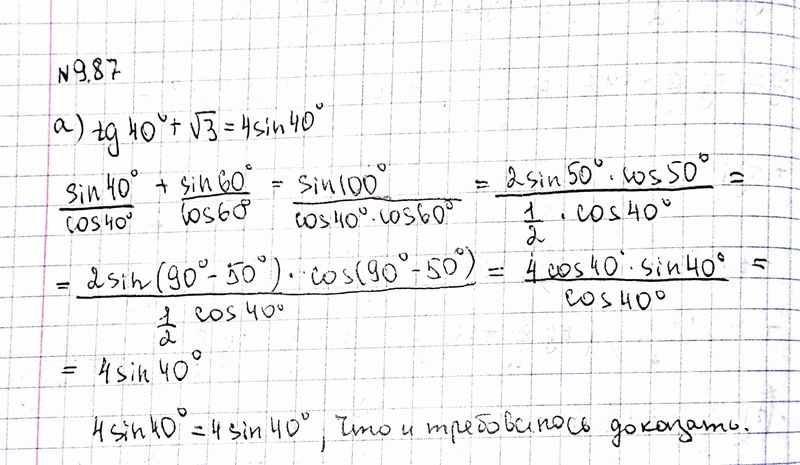 №9.87
а) tg 40° + √3 = 4sin40°
sin40°/cos40° + sin60°/cos60° = sin100°/(cos40°·cos60°) = (2sin50°·cos50°)/(1/2·cos40°) =
= (2sin(90°-50°)·cos(90°-50°))/(1/2 cos40°) = (4cos40°·sin40°)/cos40° =
= 4sin40°
4sin40°=4sin40°, что и требовалось доказать.